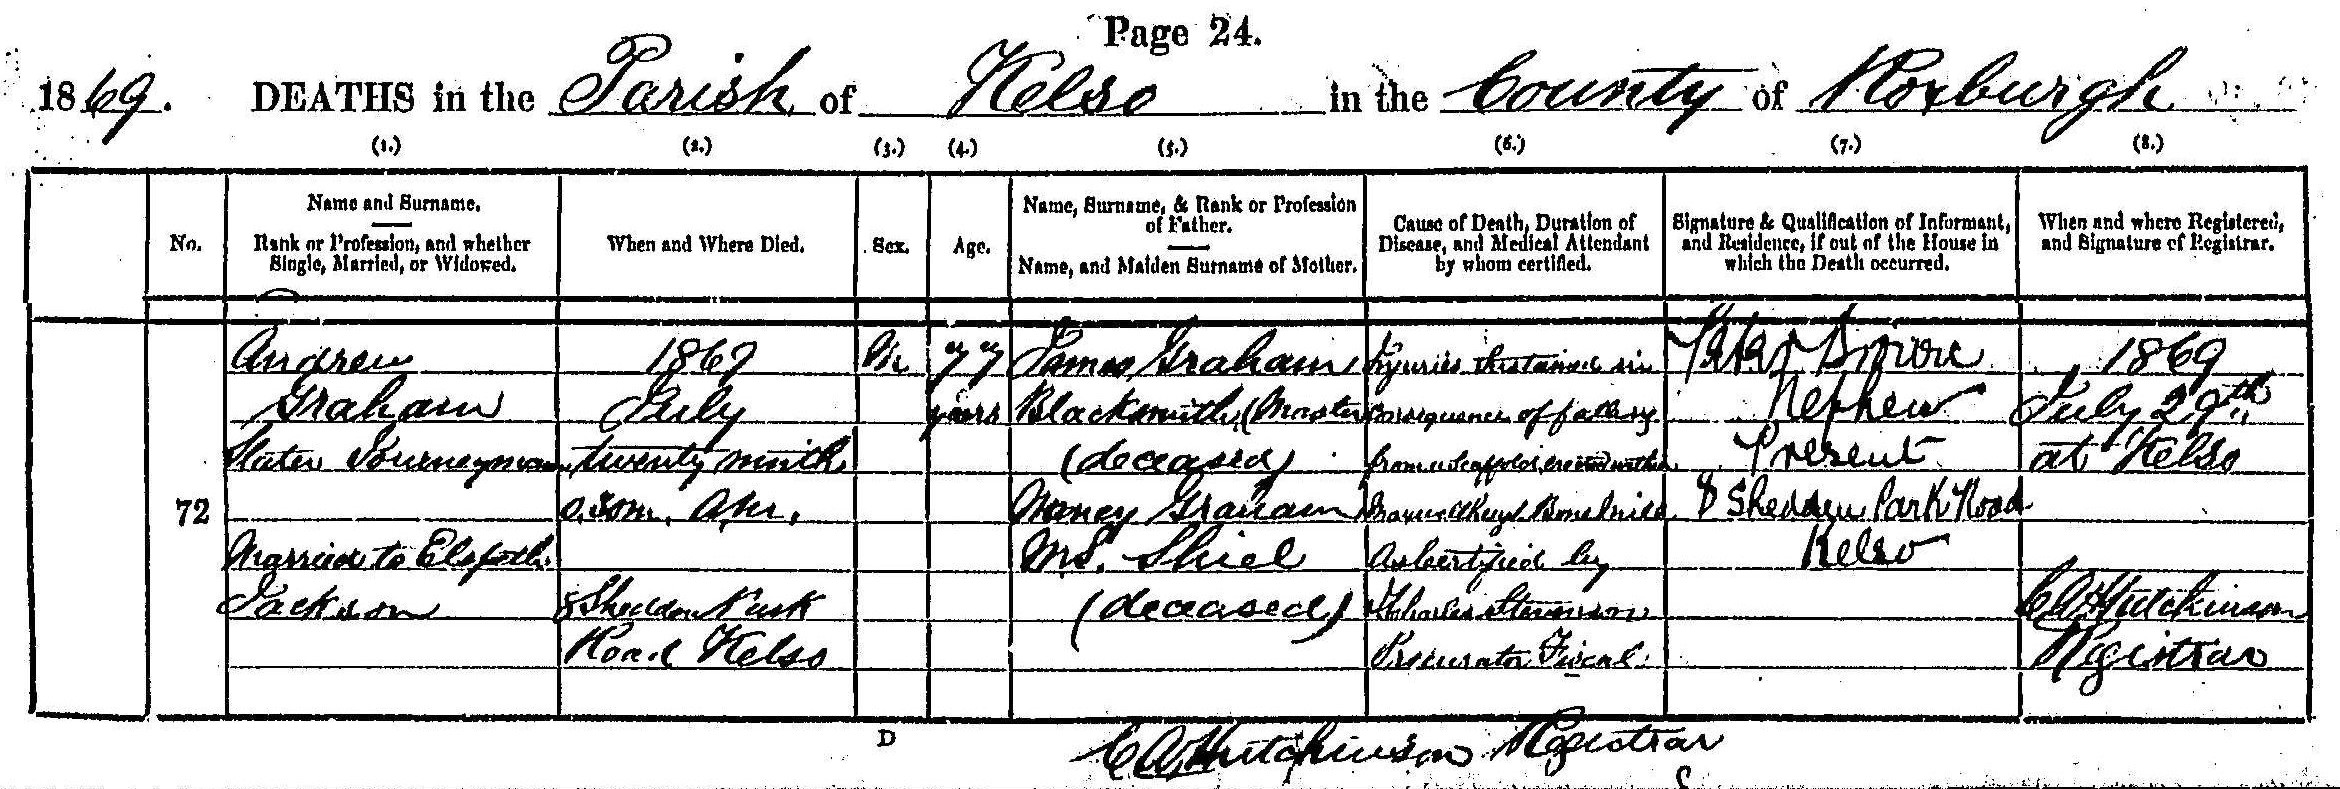 Page 24.
1869. DEATHS in the Parish of Kelso in the County of Roxburgh
(1.) (2.) (3.) (4.) (5.) (6.) (7.) (8.)
No.
Name and Surname.
Rank or Profession, and whether
Single, Married, or Widowed.
When and Where Died.
Sex.
Age.
Name, Surname, & Rank or Profession
of Father.
Name, and Maiden Surname of Mother.
Cause of Death, Duration of
Disease, and Medical Attendant
by whom certified.
Signature & Qualification of Informant,
and Residence, if out of the House in
which the Death occurred.
When and where Registered,
and Signature of Registrar.
72
Andrew
Graham
Slater Journeyman
Married to Elspeth
Jackson
1869
July
twenty ninth
8 Shedden Park
Road Kelso
M
77
years
James Graham
Blacksmith (Master
(deceased)
Nancy Graham
M.S. Shiel
(deceased)
Injuries sustained in
consequence of falling
from a scaffold erected within
Bone Mill
As certified by
Charles Stevenson
Procurator Fiscal
Peter Brown
Nephew
Present
8 Shedden Park Road
Kelso
1869
July 29th
at Kelso
C A Hutchinson
Registrar
D
C A Hutchinson Registrar